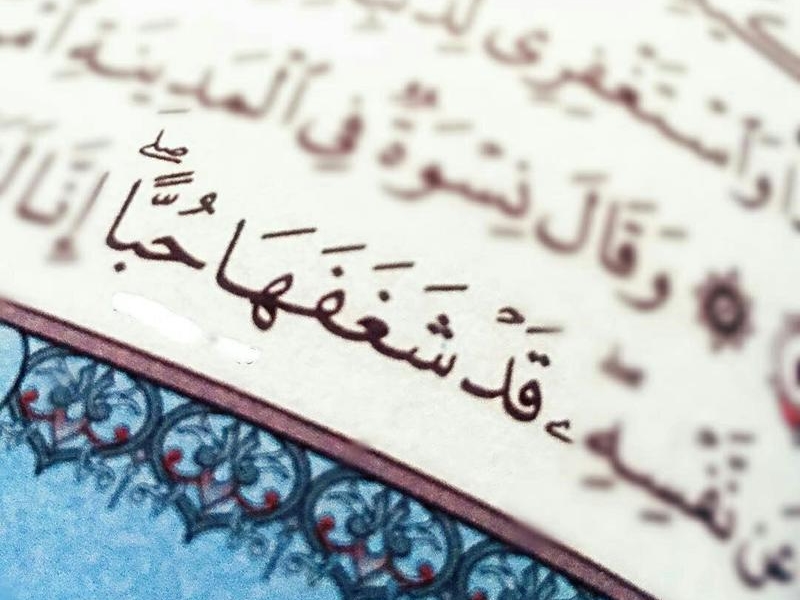 وَٱسْتَغْفِرِى
وَقَالَ نِسْوَةٌ فِى ٱلْمَدِينَةِ
عَن نَّفْسِهِۦۖ قَدْ شَغَفَهَا حُبًّاۖ إِنَّا